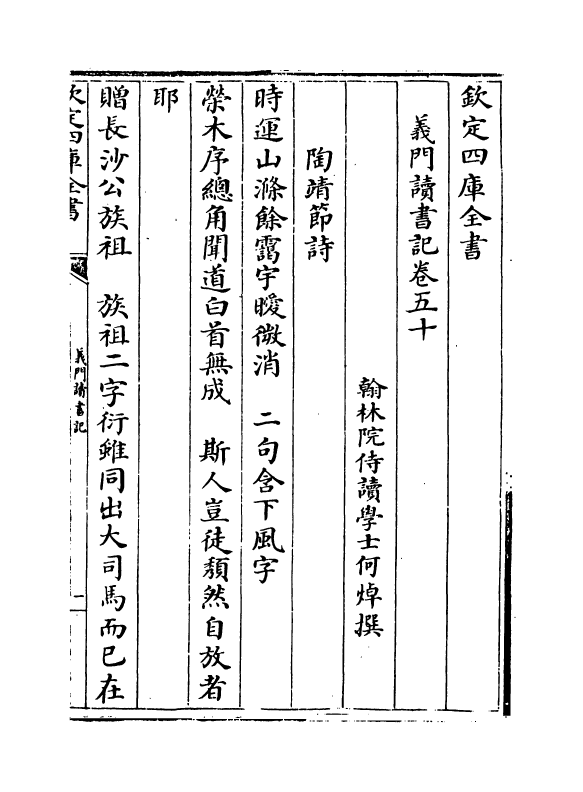 欽定四庫全書
義門讀書記卷五十
翰林院侍讀學士何焯撰
陶靖節詩
時運山滌餘靄宇曖微消　二句含下風字
榮木序總角聞道白首無成　斯人豈徒頽然自放者
耶
贈長沙公族祖　族祖二字衍雖同出大司馬而已在
欽定四庫全書
義門讀書記
一